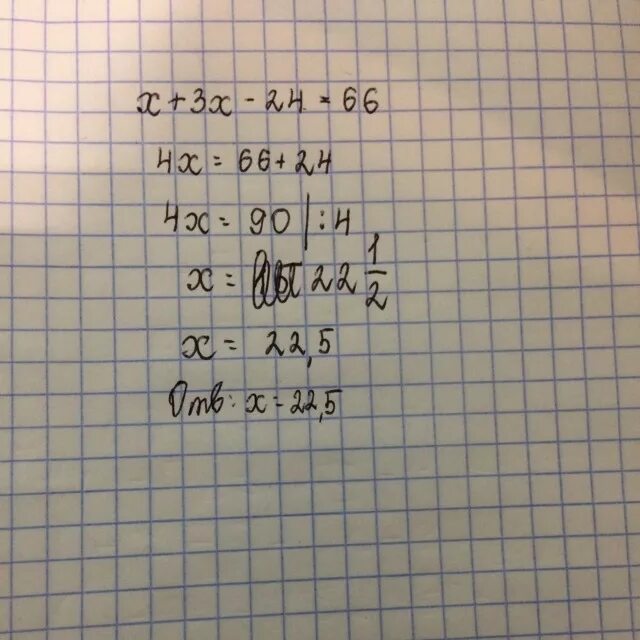 x + 3x - 24 = 66
4x = 66 + 24
4x = 90 | : 4
x = 22 1/2
x = 22,5
Отв: x = 22,5